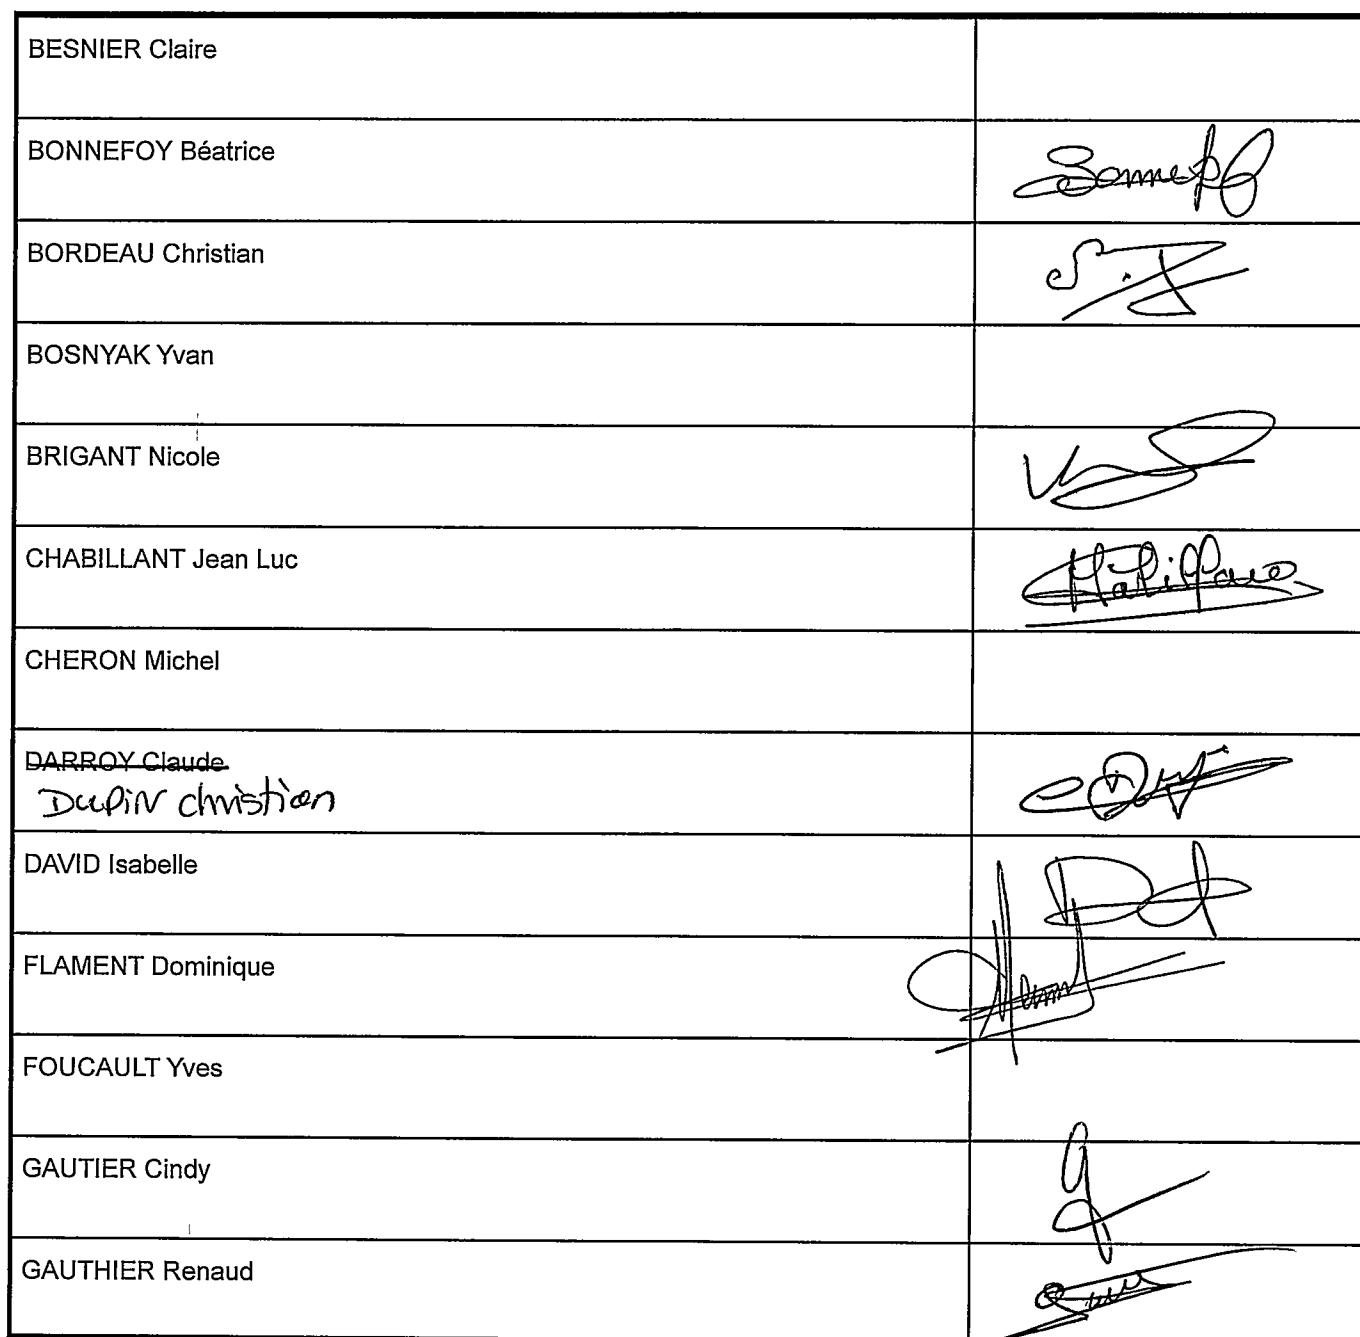 BESNIER Claire
BONNEFOY Béatrice
BORDEAU Christian
BOSNYAK Yvan
BRIGANT Nicole
CHABILLANT Jean Luc
CHERON Michel
DARROY Claude
DUPIN christian
DAVID Isabelle
FLAMENT Dominique
FOUCAULT Yves
GAUTIER Cindy
GAUTHIER Renaud